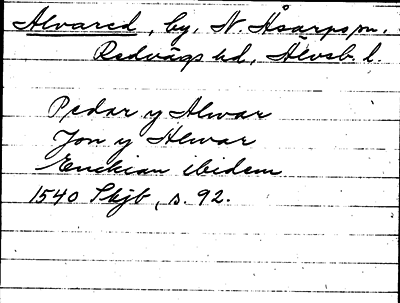 Alvared, by, N. Åsarps sn.
Redvägs hd, Älvsb. l.
Pedar y Alwar
Jon y Alwar
Enckian ibidem
1540 Skjb, s. 92.